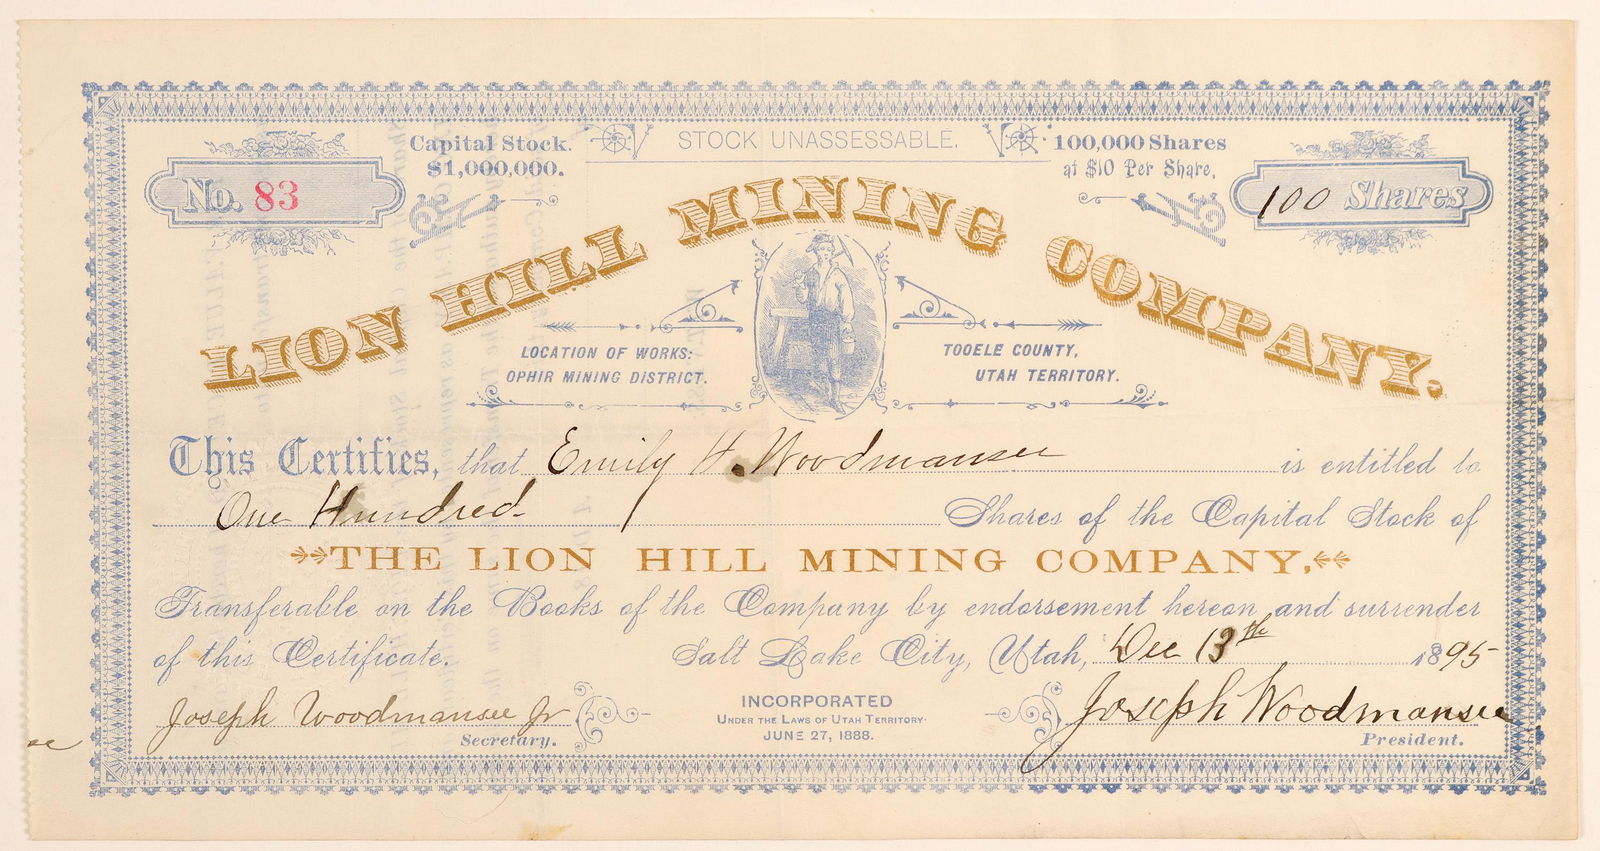 Capital Stock. $1,000,000.
STOCK UNASSESSABLE.
100,000 Shares at $10 Per Share.
No. 83
100 Shares
LION HILL MINING COMPANY.
LOCATION OF WORKS:
OPHIR MINING DISTRICT.
TOOELE COUNTY,
UTAH TERRITORY.
This Certifies, that Emily H. Woodmansee is entitled to
One Hundred Shares of the Capital Stock of
THE LION HILL MINING COMPANY,
Transferable on the Books of the Company by endorsement hereon and surrender
of this Certificate. Salt Lake City, Utah, Dec 13th 1895
Joseph Woodmansee Jr
Secretary.
INCORPORATED
UNDER THE LAWS OF UTAH TERRITORY.
JUNE 27, 1888.
Joseph Woodmansee
President.